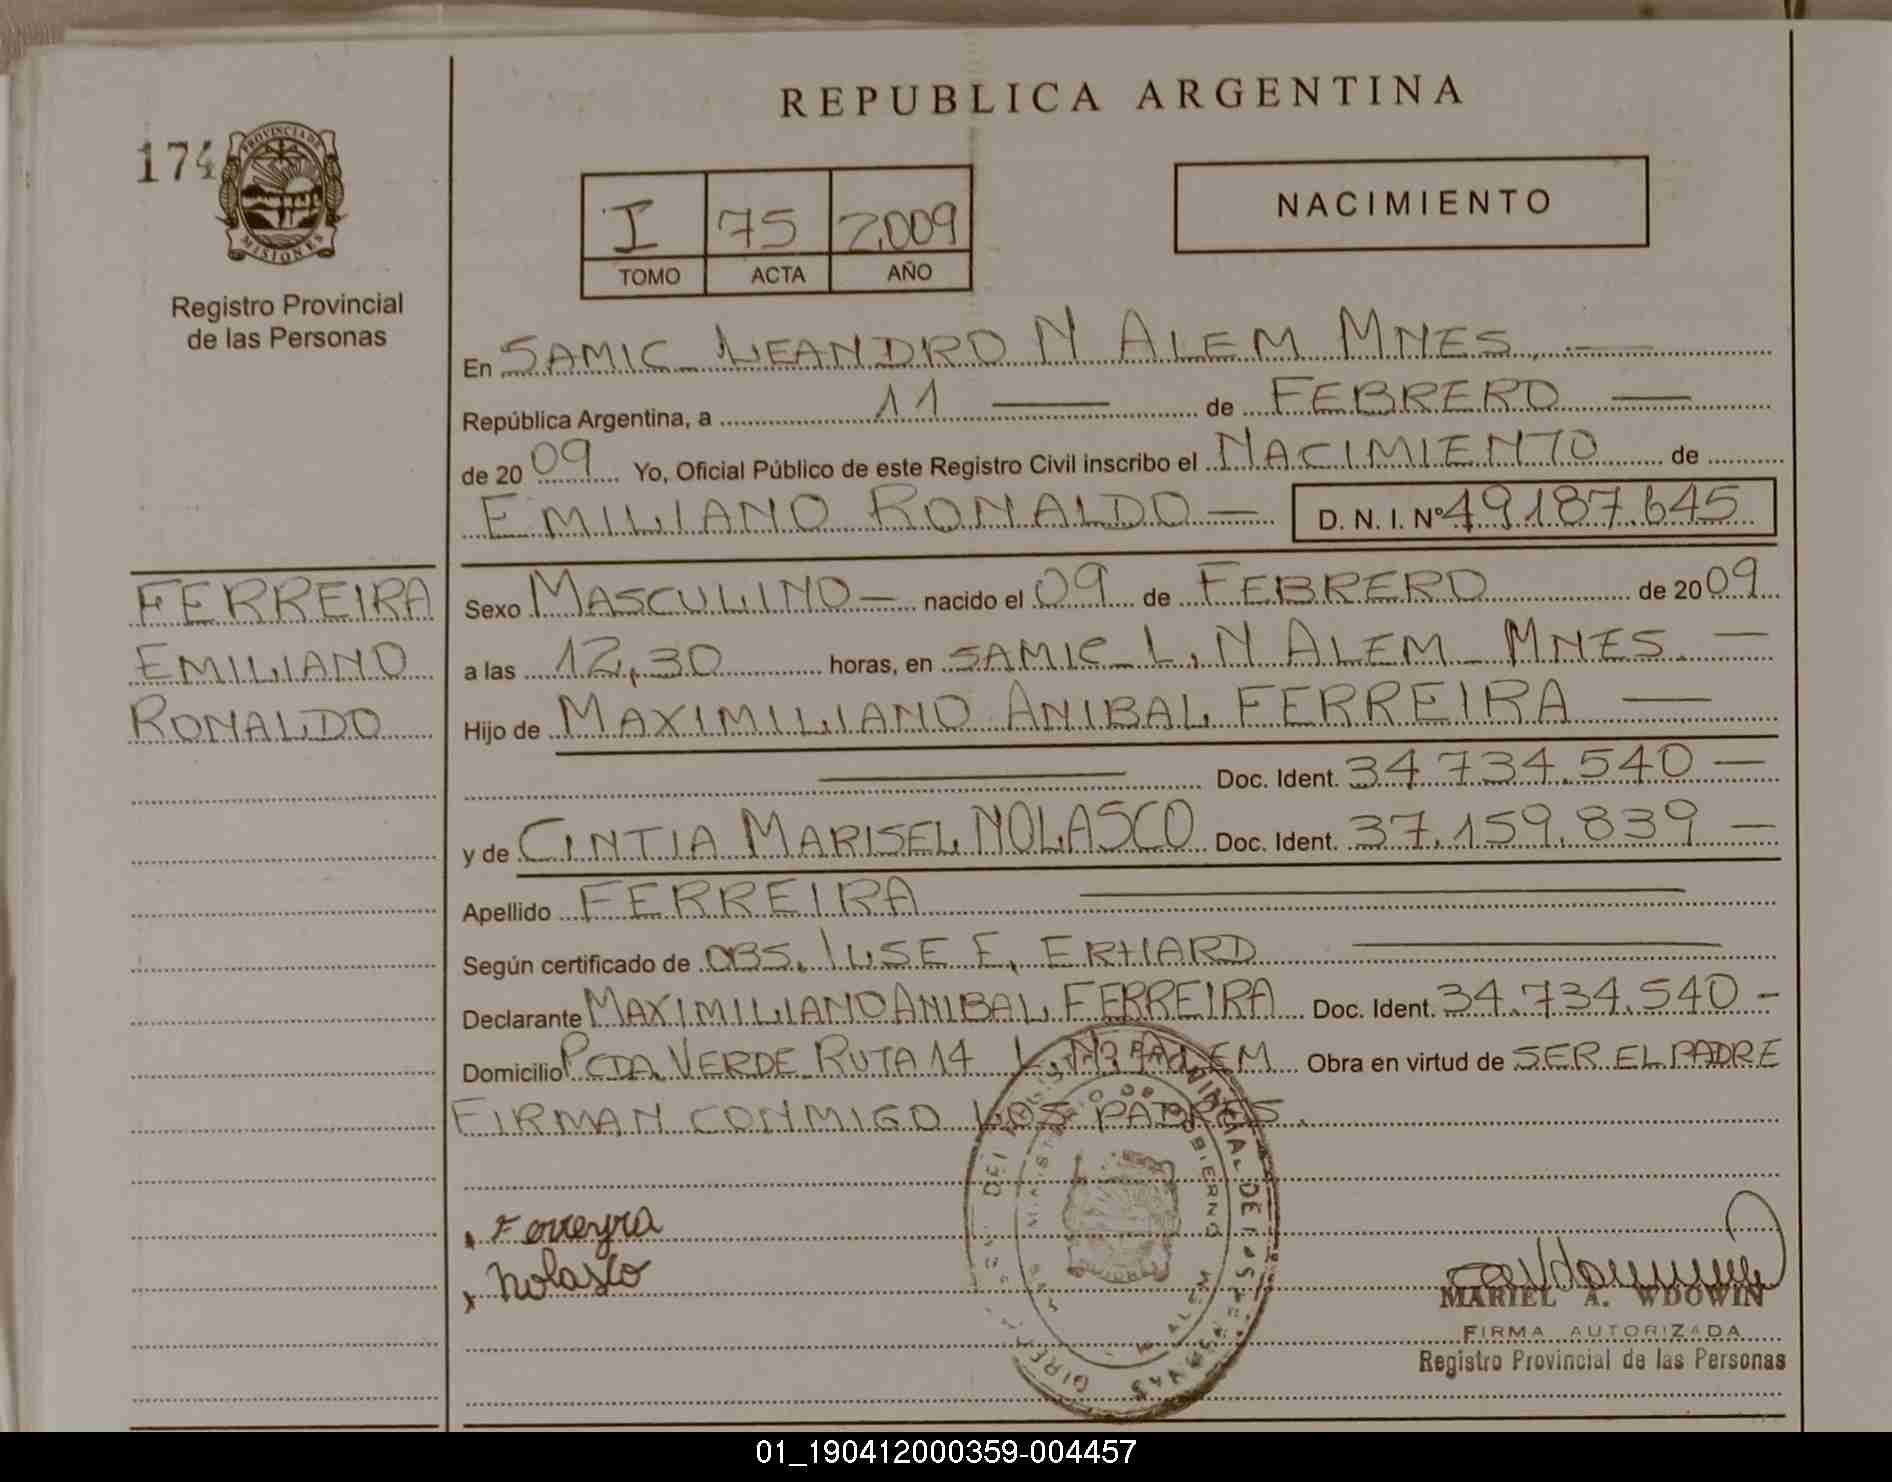 REPUBLICA ARGENTINA
174
PROVINCIA DE
MISIONES
Registro Provincial
de las Personas
I 75 2009
TOMO ACTA AÑO
NACIMIENTO
En SAMIC LEANDRO N ALEM MNES. —
República Argentina, a 11 — de FEBRERO —
de 20 09 Yo, Oficial Público de este Registro Civil inscribo el NACIMIENTO de
EMILIANO RONALDO — D. N. I. Nº 49.187.645
FERREIRA
EMILIANO
RONALDO
Sexo MASCULINO — nacido el 09 de FEBRERO de 20 09
a las 12,30 horas, en SAMIC L. N ALEM MNES. —
Hijo de MAXIMILIANO ANIBAL FERREIRA —
— Doc. Ident. 34.734.540 —
y de CINTIA MARISEL NOLASCO Doc. Ident. 37.159.839 —
Apellido FERREIRA —
Según certificado de OBS. ILSE E. ERHARD —
Declarante MAXIMILIANO ANIBAL FERREIRA Doc. Ident. 34.734.540 -
Domicilio PCDA. VERDE RUTA 14 L. N. ALEM Obra en virtud de SER EL PADRE
FIRMAN CONMIGO LOS PADRES.
Ferreyra
Nolasco
MARIEL A. WDOWIN
FIRMA AUTORIZADA
Registro Provincial de las Personas
01_190412000359-004457